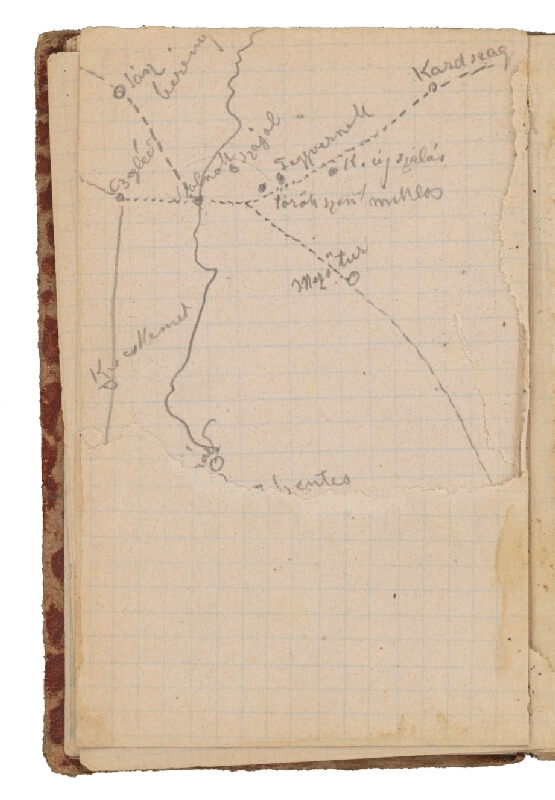 Jász
berény
Kardszag
Czegléd
Szolnok
Szajol
Fegyvernek
K. újszálás
török szent miklos
Mező tur
Kecskemet
Szentes